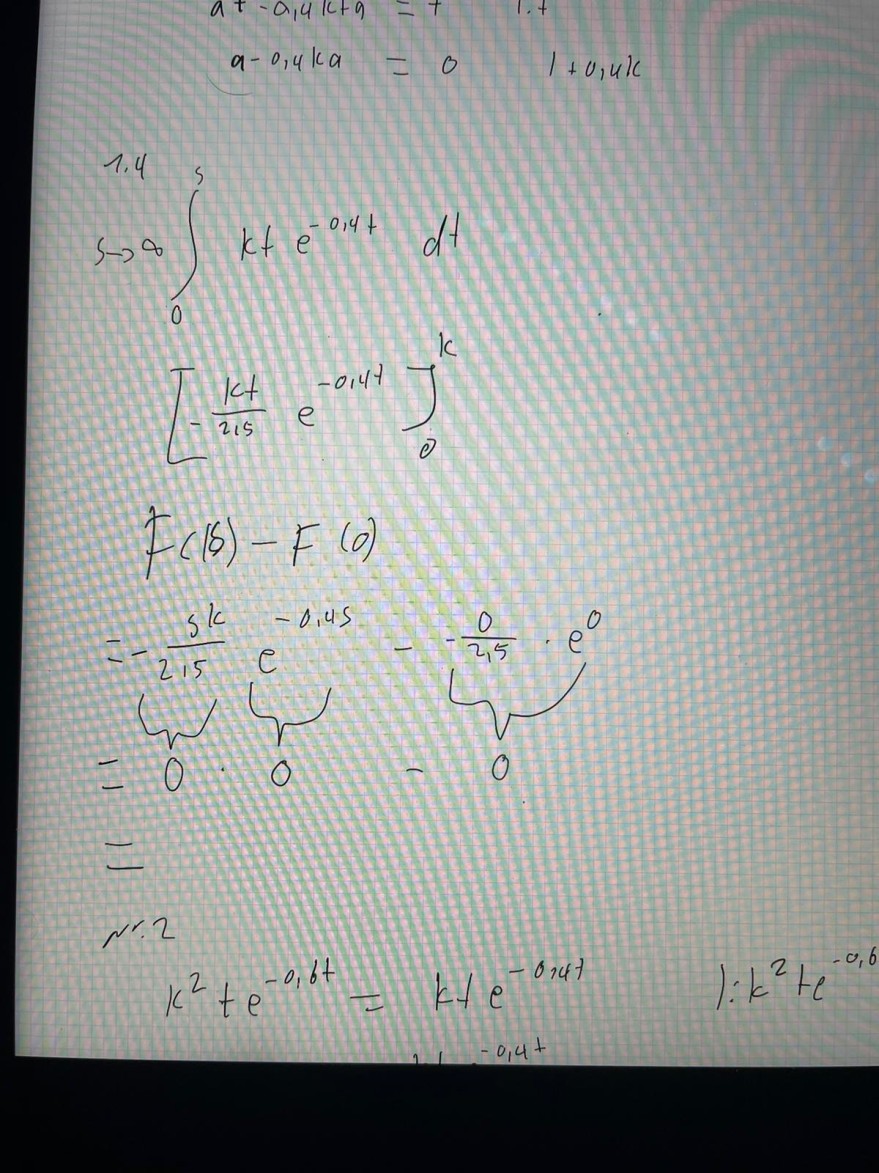 at - 0,4kta = t 1:t
a - 0,4ka = 0 | + 0,4k
1.4
s→∞ ∫₀ˢ kt e^{-0,4t} dt
[- kt/2,5 e^{-0,4t}]₀ᵏ
F(s) - F(0)
= - sk/2,5 e^{-0,4s} - - 0/2,5 · e⁰
= 0 · 0 - 0
=
Nr. 2
k² t e^{-0,6t} = kt e^{-0,4t} |: k² t e^{-0,6
e^{-0,4t}